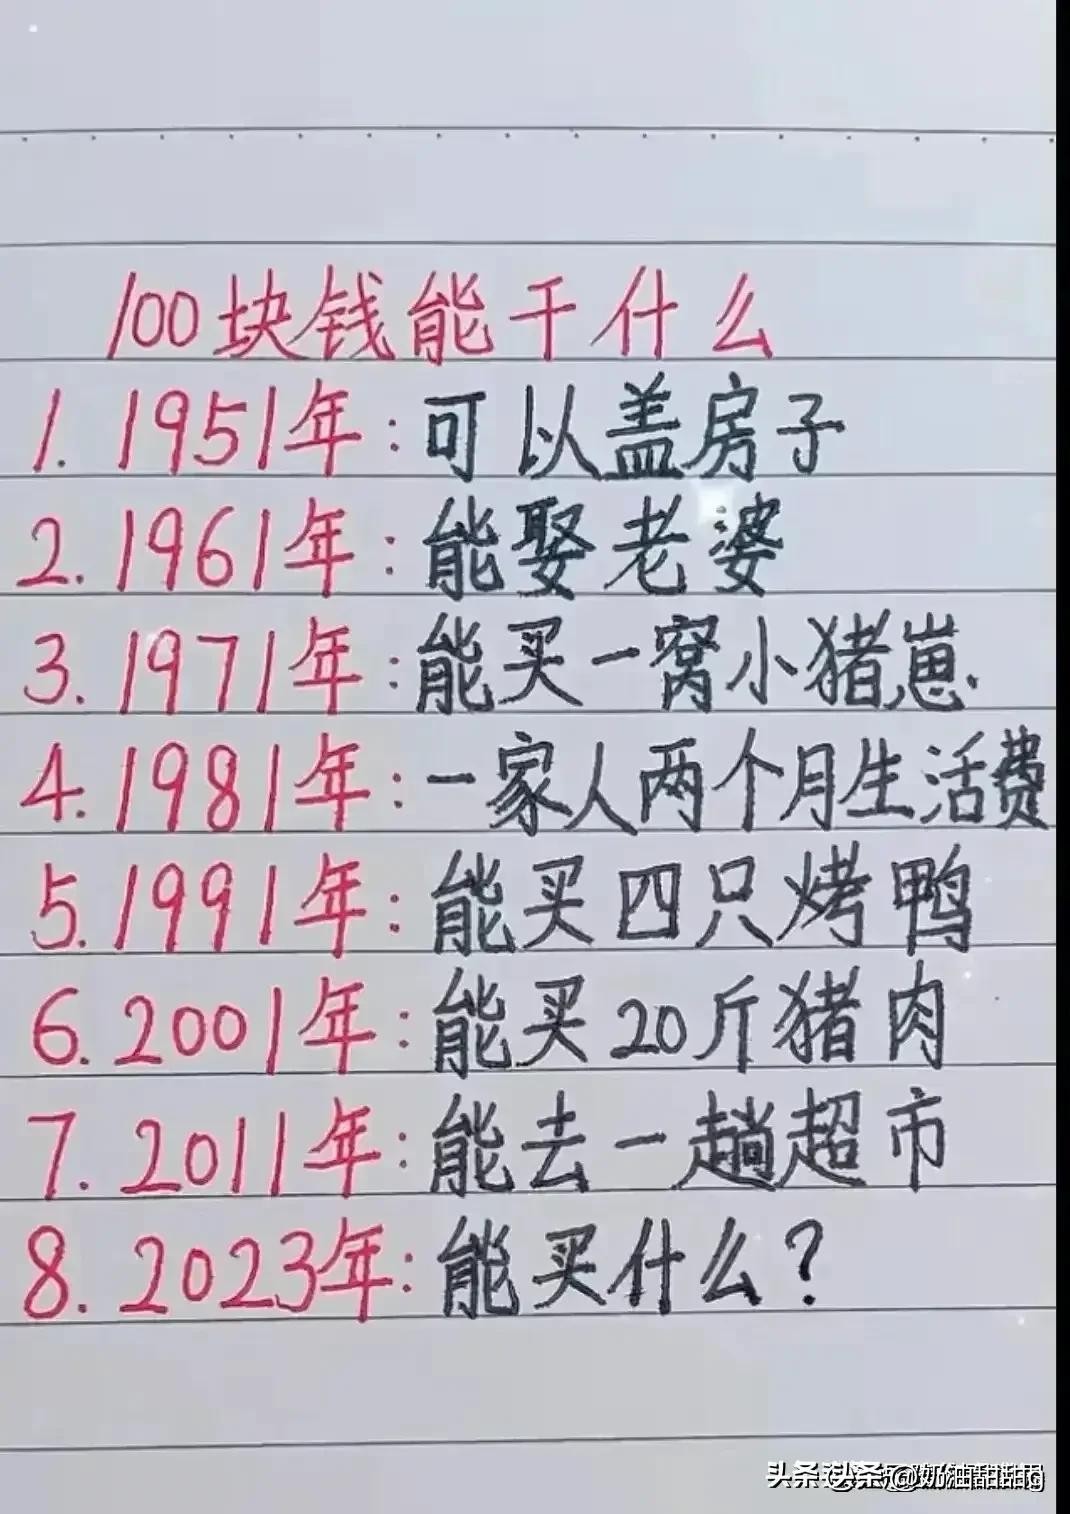 100块钱能干什么
1. 1951年:可以盖房子
2. 1961年:能娶老婆
3. 1971年:能买一窝小猪崽.
4. 1981年:一家人两个月生活费
5. 1991年:能买四只烤鸭
6. 2001年:能买20斤猪肉
7. 2011年:能去一趟超市
8. 2023年:能买什么?
头条 @奶油甜甜